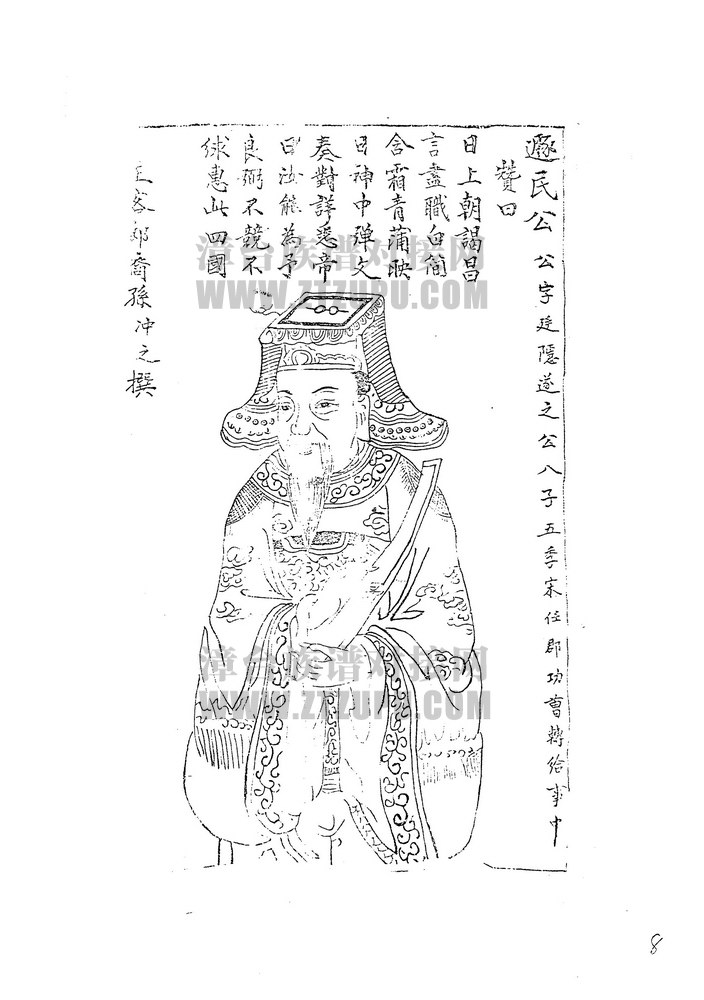 遯民公 公字廷隱遂之公八子五季宋任郡功曹轉給事中
贊曰
日上朝謁昌
言盡職白簡
含霜青蒲映
日神中彈文
奏對詳悉帝
曰汝能為予
良弼不競不
絿惠此四國
主客郎裔孫冲之撰
漳台族谱对接网
WWW.ZTZUPU.COM
漳台族谱对接网
WWW.ZTZUPU.COM
8